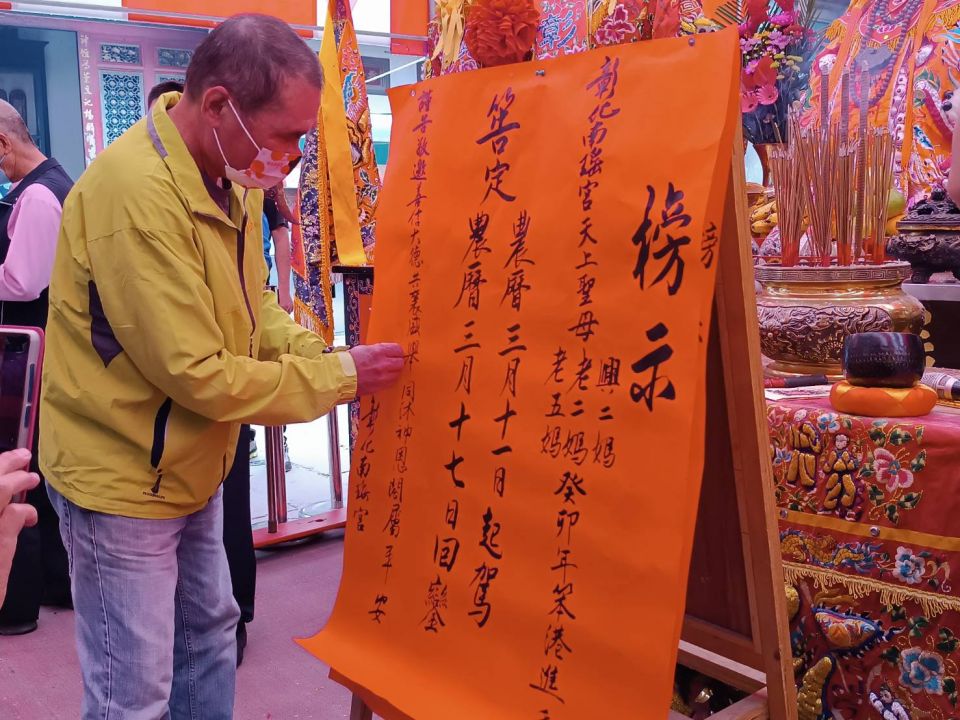 榜示
彰化南瑤宮天上聖母
興二媽
老二媽
老五媽
癸卯年笨港進
筶定
農曆三月十一日起駕
農曆三月十七日回鑾
謹告敬邀善信大德共襄盛舉同沐神恩閤屬平安
彰化南瑤宮